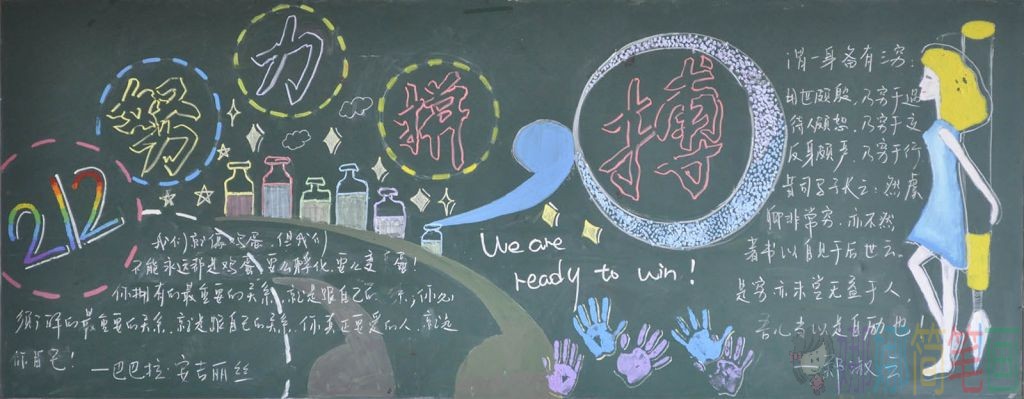 努力拼搏
212
We are
ready to win!
我们就像鸡蛋,但我们
不能永远都是鸡蛋,要么孵化,要么变 蛋!
你拥有的最重要的关系,就是跟自己的 系,你必
须 的最重要的关系,就是跟自己的关系,你真正要爱的人,就是
你自己!
—巴巴拉·安吉丽丝
谓一身备有三穷:
用世颇殷,乃穷于遇
待人颇恕,乃穷于
反身颇严,乃穷于行
昔司马子长云:然虞
卿非常穷,亦不然
著书以自见于后世云。
是穷亦未尝无益于人,
吾心当以是自励也!
—郑淑云
简笔画